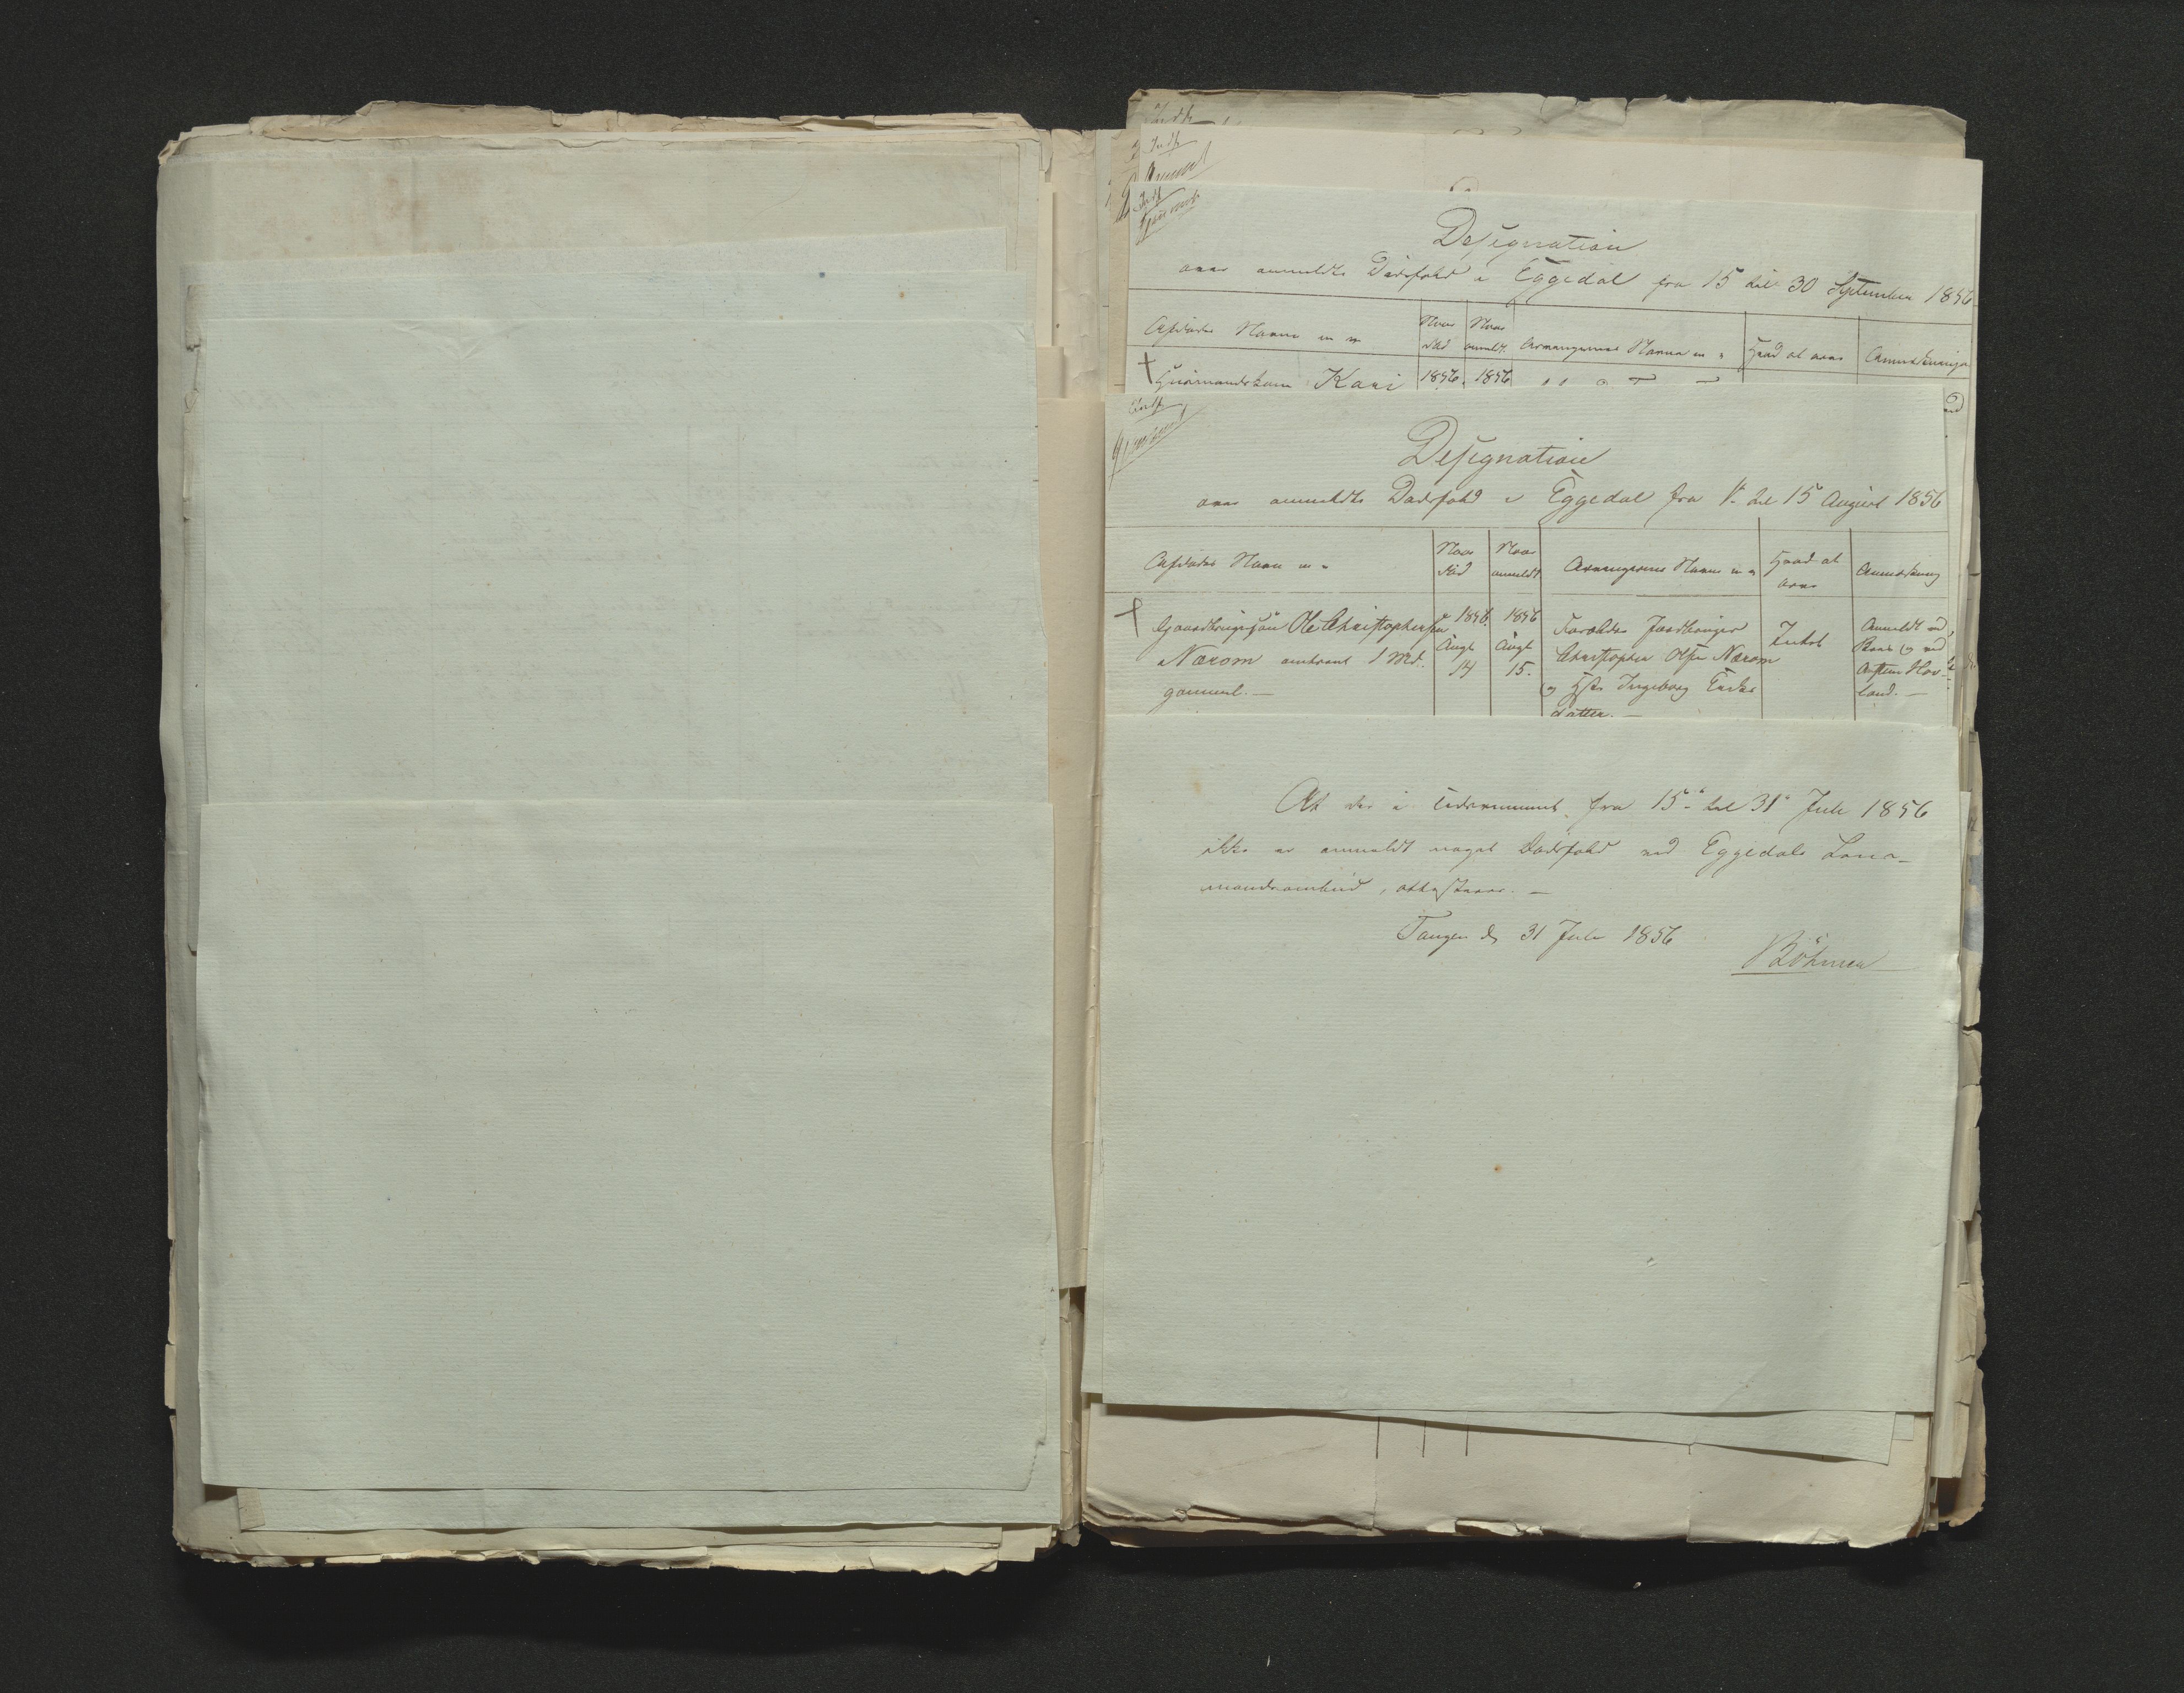 Indf
Designation
over anmeldte Dødsfald i Eggedal fra 15 til 30 September 1856
Afdødes Navn m m
Naar død
Naar anmeldt.
Arvingernes Navne m m
Hvad at arve
Anmærkninger
† Huusmandskone Kari
1856.
1856
Indf
Designation
over anmeldte Dødsfald i Eggedal fra 1ste til 15 August 1856
Afdødes Navn m m
Naar død
Naar anmeldt
Arvingernes Navne m m
Hvad at arve
Anmærkning
† Gaardbrugersøn Ole Christophersen
Narom omtrent 1 Md.
gammel. —
1856.
Augt
14
1856
Augt
15.
Forældre Jordbruger
Christopher Olsen Narom
og Hustru Ingeborg Eriks
datter. —
Intet
Anmeldt ved
land. —
At der i Tidsrummet fra 15de til 31te Juli 1856
ikke er anmeldt noget Dødsfald ved Eggedals Lens-
mandsombud, attesteres. —
Tangen d. 31 Juli 1856
Böhmer